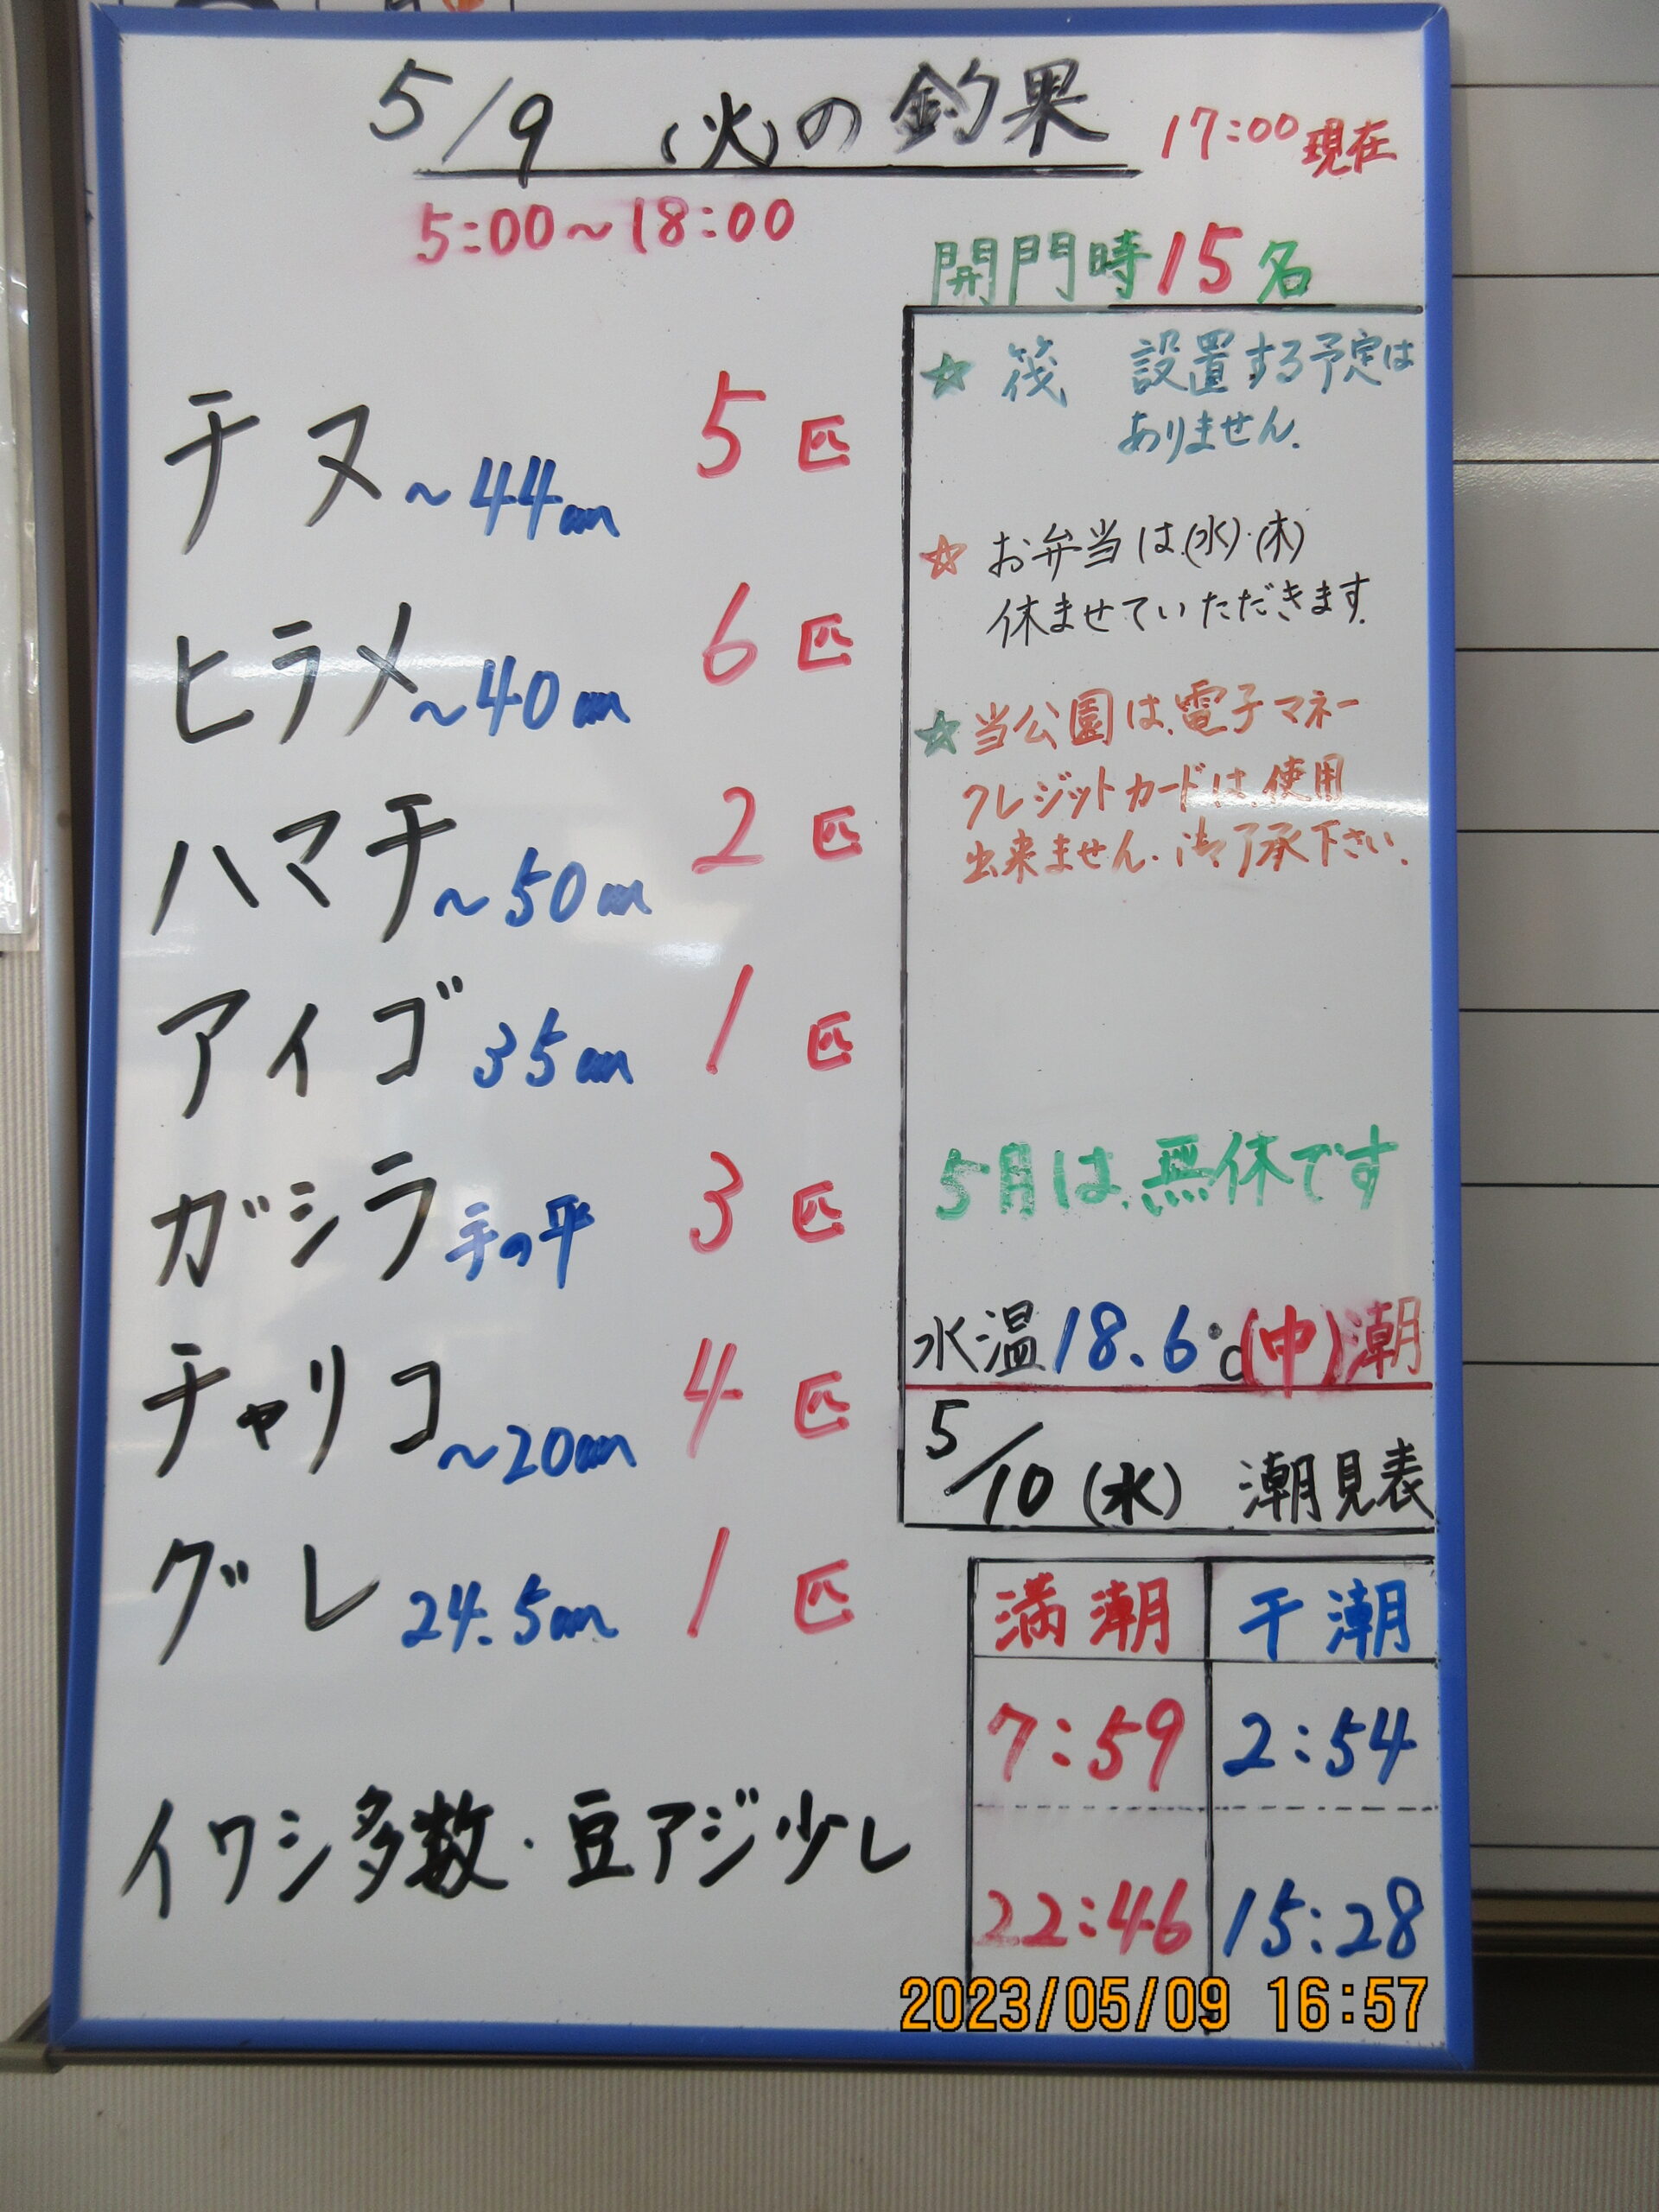 5/9 (火)の釣果 17:00現在
5:00～18:00
開門時15名
チヌ～44cm 5匹
ヒラメ～40cm 6匹
ハマチ～50cm 2匹
アイゴ 35cm 1匹
ガシラ手の平 3匹
チャリコ～20cm 4匹
グレ 24.5cm 1匹
イワシ多数・豆アジ少し
☆ 筏 設置する予定は
ありません.
☆ お弁当は(水)・(木)
休ませていただきます.
☆ 当公園は、電子マネー
クレジットカードは、使用
出来ません. 御了承下さい.
5月は、無休です
水温18.6℃(中)潮
5/10(水) 潮見表
満潮 干潮
7:59 2:54
22:46 15:28
2023/05/09 16:57